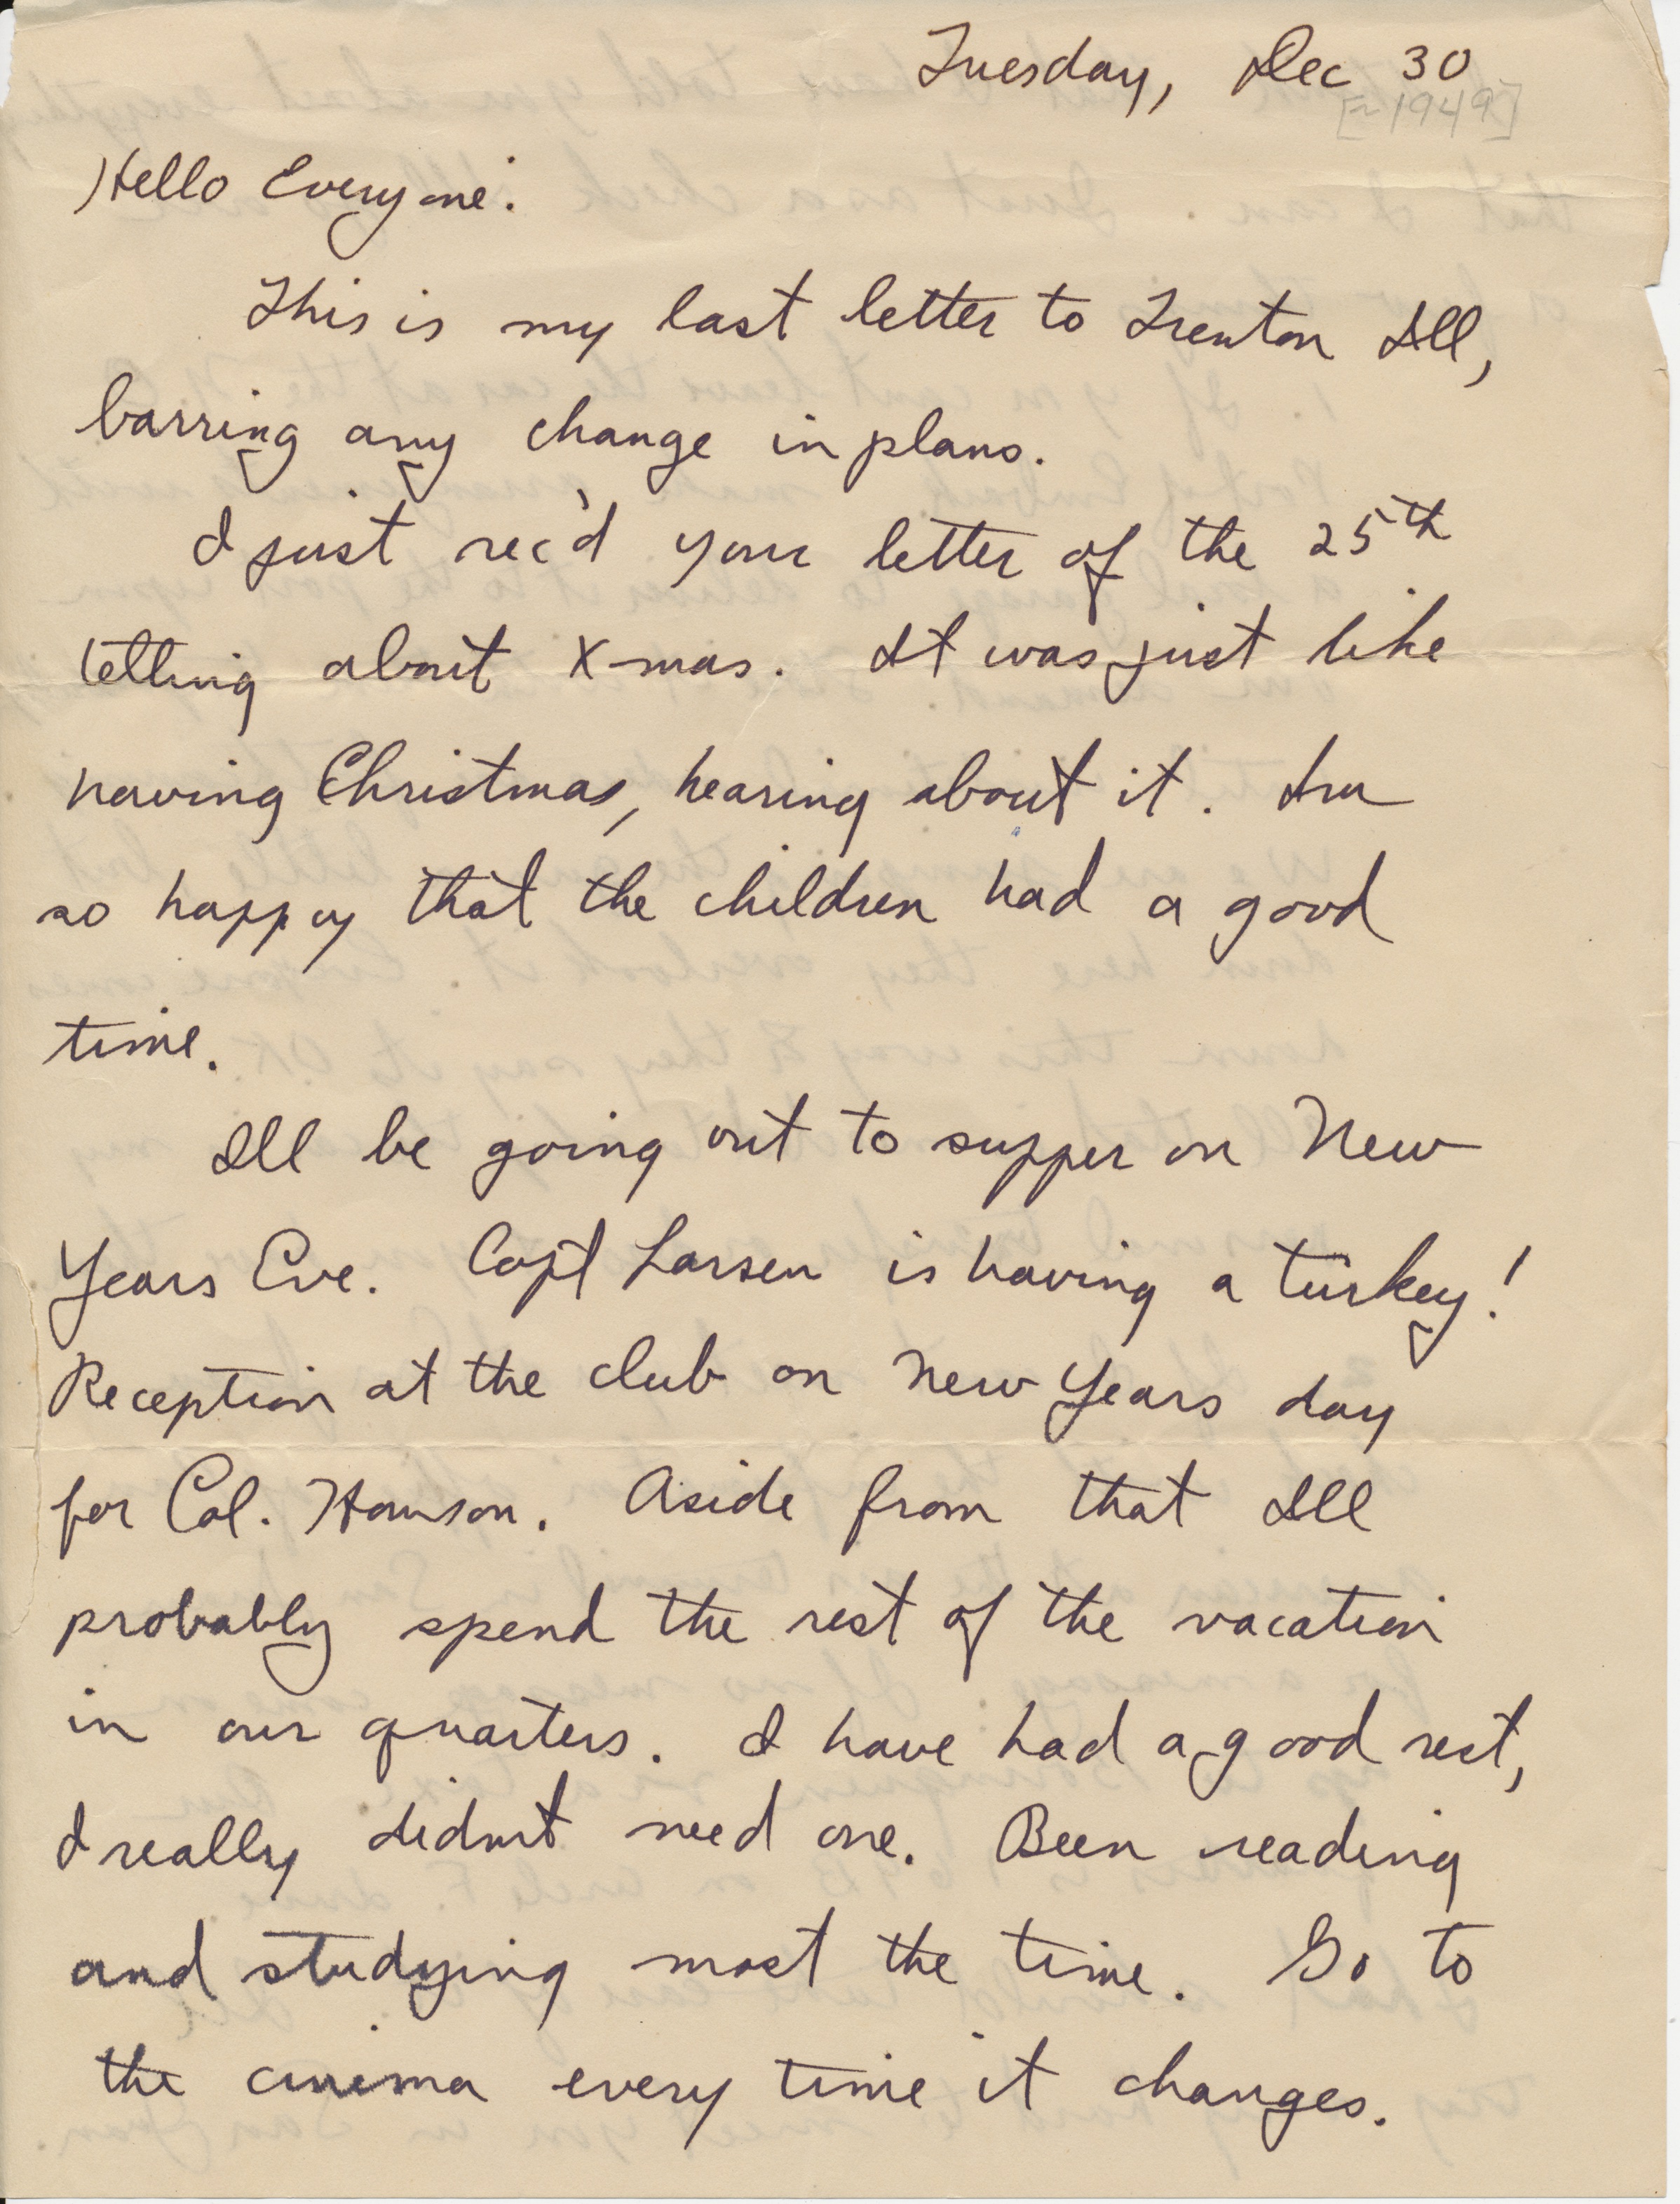 Tuesday, Dec 30
[~1949]
Hello Everyone:
This is my last letter to Trenton Ill,
barring any change in plans.
I just rec'd your letter of the 25th
telling about X-mas. It was just like
having Christmas, hearing about it. Im
so happy that the children had a good
time.
Ill be going out to supper on New
Years Eve. Capt Larsen is having a turkey!
Reception at the club on New Years day
for Col. Howson. Aside from that Ill
probably spend the rest of the vacation
in our quarters. I have had a good rest,
I really didnt need one. Been reading
and studying most the time. Go to
the cinema every time it changes.